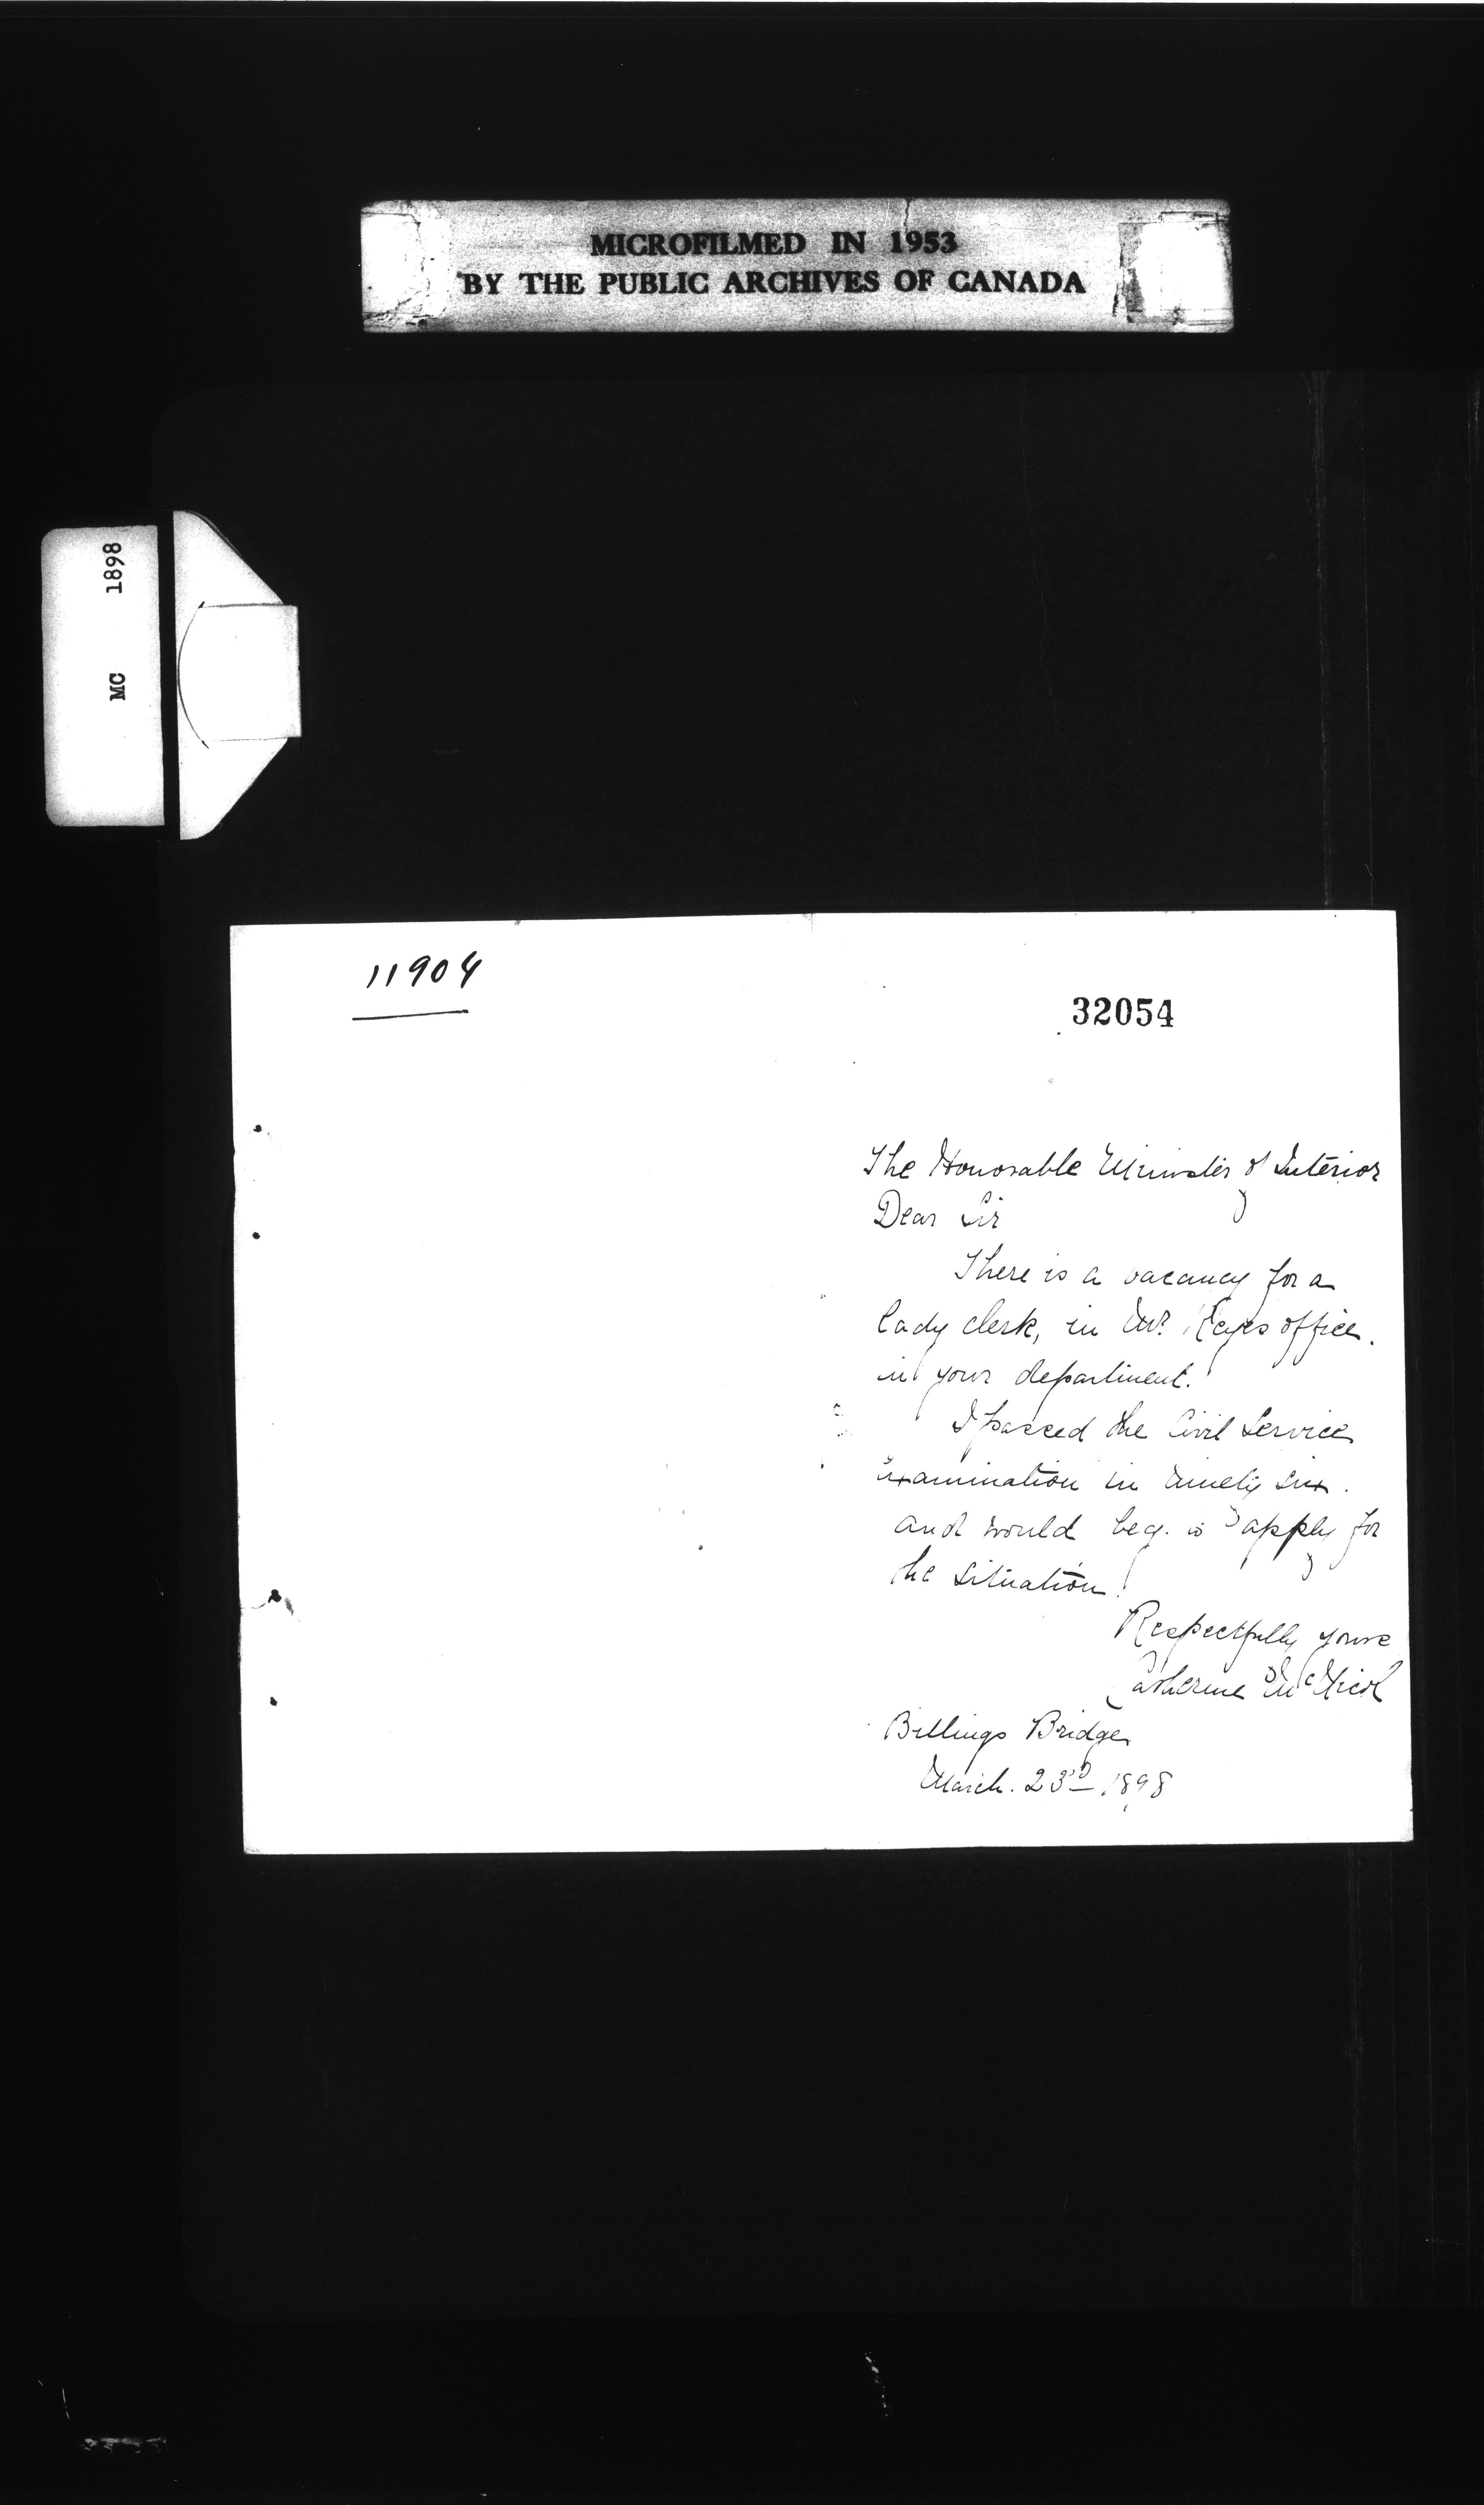 MICROFILMED IN 1953
BY THE PUBLIC ARCHIVES OF CANADA
MC 1898
11904
32054
The Honorable Minister of Interior
Dear Sir
There is a vacancy for a
lady clerk, in Mr. Keyes office.
in your department.
I passed the Civil Service
examination in ninety six.
and would beg to apply for
the situation.
Respectfully yours
Catherine McNicol
Billings Bridge
March. 23rd 1898